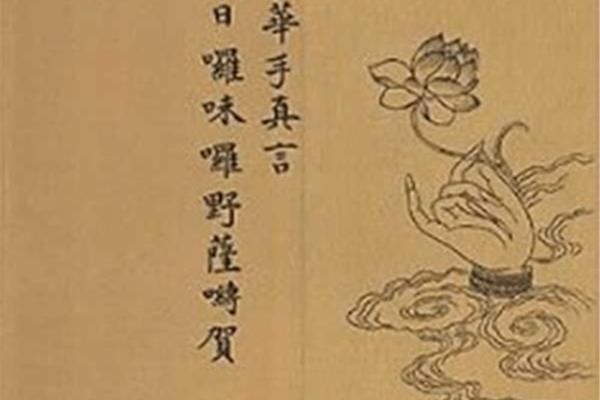 華手真言
日囉味囉野薩嚩賀